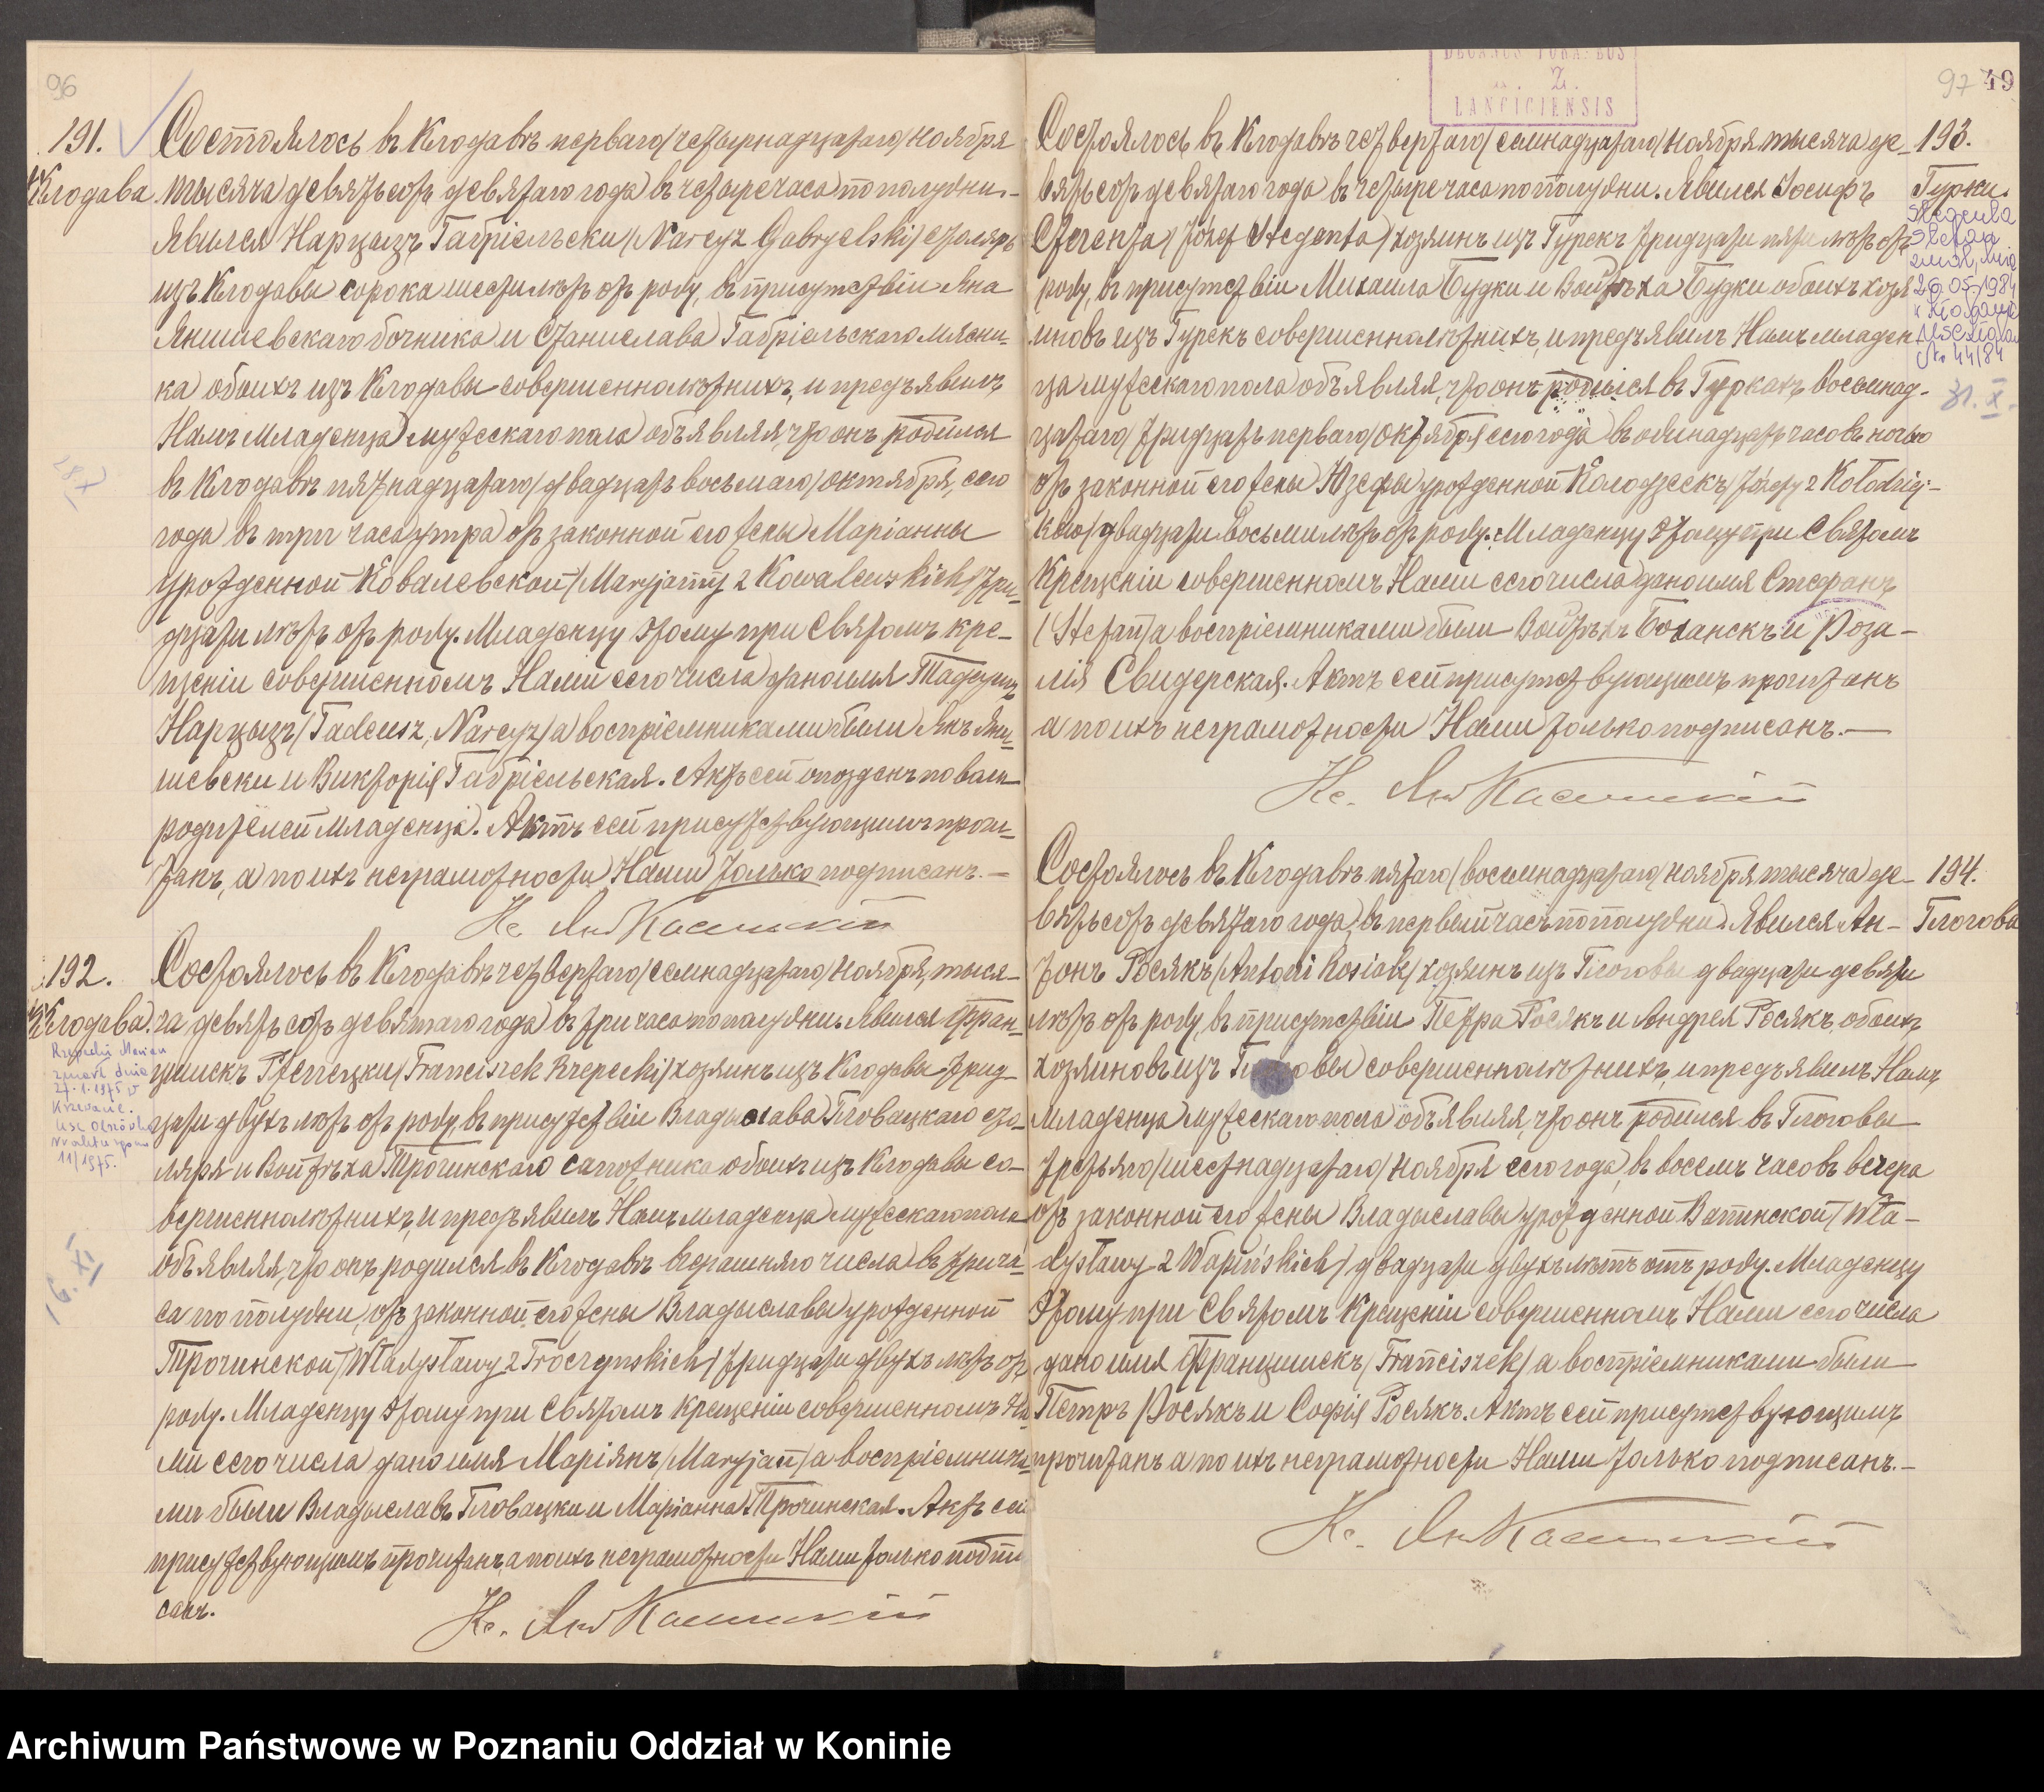 96
191.
Клодава
Состоялось въ Клодавѣ перваго /четырнадцатаго/ ноября
тысяча девятьсотъ девятаго года въ четыре часа по полудни.-
Явился Нарцызъ Габріельски /Narcyz Gabryelski/ столяръ
изъ Клодавы сорока шести лѣтъ отъ роду, въ присутствіи Яна
Янишевскаго бочника и Станислава Габріельскаго мясни-
ка обоихъ изъ Клодавы совершеннолѣтнихъ, и предъявилъ
Намъ Младенца мужескаго пола объявляя, что онъ родился
въ Клодавѣ пятнадцатаго /двадцать восьмаго/ октября, сего
года въ три часа утра отъ законной его жены Маріанны
урожденной Ковалевской /Maryjanny z Kowalewskich/ три-
дцати лѣтъ отъ роду. Младенцу этому при Святомъ кре-
щеніи совершенномъ Нами сего числа дано имя Тадеушъ
Нарцызъ /Tadeusz, Narcyz/ а воспріемниками были Янъ Яни-
шевски и Викторія Габріельская. Актъ сей опозданъ по вали
родителей младенца. Актъ сей присутствующимъ прочи-
танъ, а по ихъ неграмотности Нами только подписанъ.-
Кс. Ян
192.
Клодава.
Состоялось въ Клодавѣ четвертаго /семнадцатаго/ ноября, тыся-
ча девятьсотъ девятаго года въ три часа по полудни. Явился Фран-
цишекъ Ржепецки /Franciszek Rzepecki/ хозяинъ изъ Клодавы трид-
цати двухъ лѣтъ отъ роду, въ присутствіи Владыслава Гловацкаго сто-
ляря и Войтѣха Трочинскаго сапожника обоихъ изъ Клодавы со-
вершеннолѣтнихъ, и предъявилъ Намъ младенца мужескаго пола
объявляя, что онъ родился въ Клодавѣ вчерашняго числа въ три ча-
са по полудни, отъ законной его жены Владыславы урожденной
Трочинской /Władysławy z Troczynskich/ тридцати двухъ лѣтъ отъ
роду. Младенцу этому при Святомъ крещеніи совершенномъ На-
ми сего числа дано имя Маріянъ /Maryjan/ а воспріемника-
ми были Владыславъ Гловацки и Маріанна Трочинская. Актъ сей
присутствующимъ прочитанъ, а по ихъ неграмотности Нами только подпи-
санъ.
Кс. Ян
Rzepecki Marian
zmarł dnia
27.1.1975 w
11/1975.
16. XI
DECANUS FORANEUS
LANCICIENSIS
97
49
193.
Турки.
zmarł dnia
26.05.1984
w Kłodawie
№ 44/84
31. X.
Состоялось въ Клодавѣ четвертаго /семнадцатаго/ ноября тысяча де-
вятьсотъ девятаго года въ четыре часа по полудни. Явился Іосифъ
Стегента /Józef Stegenta/ хозяинъ изъ Турекъ тридцати пяти лѣтъ отъ
роду, въ присутствіи Михаила Будки и Войтѣха Будки обоихъ хозя-
иновъ изъ Турекъ совершеннолѣтнихъ, и предъявилъ Намъ младен-
ца мужескаго пола объявляя, что онъ родился въ Туркахъ восьмнад-
цатаго /тридцать перваго/ октября сего года въ одинадцать часовъ ночью
отъ законной его жены Юзефы урожденной Колодзеекъ /Józefy z Kołodziej-
ków/ двадцати восьми лѣтъ отъ роду. Младенцу этому при Святомъ
Крещеніи совершенномъ Нами сего числа дано имя Стефанъ
/Stefan/ а воспріемниками были Войтѣхъ Боханскъ и Роза-
лія Свидерская. Актъ сей присутствующимъ прочитанъ
а по ихъ неграмотности Нами только подписанъ.-
Кс. Ян
194.
Глогова
Состоялось въ Клодавѣ пятаго /восьмнадцатаго/ ноября тысяча де-
вятьсотъ девятаго года, въ первый часъ по полудни. Явился Ан-
тонъ Росякъ /Antoni Rosiak/ хозяинъ изъ Глоговы двадцати девяти
лѣтъ отъ роду, въ присутствіи Петра Росякъ и Андрея Росякъ, обоихъ
хозяиновъ изъ Глоговы совершеннолѣтнихъ, и предъявилъ Намъ
Младенца мужескаго пола объявляя, что онъ родился въ Глоговы
третьяго /шестнадцатаго/ ноября сего года, въ восемь часовъ вечера
отъ законной его жены Владыславы урожденной Вапинской /Wła-
dysławy z Wapińskich/ двадцати двухъ лѣтъ отъ роду. Младенцу
этому при Святомъ Крещеніи совершенномъ Нами сего числа
дано имя Францишекъ /Franciszek/ а воспріемниками были
Петръ Росякъ и Софія Росякъ. Актъ сей присутствующимъ
прочитанъ а по ихъ неграмотности Нами только подписанъ.-
Кс. Ян
Archiwum Państwowe w Poznaniu Oddział w Koninie